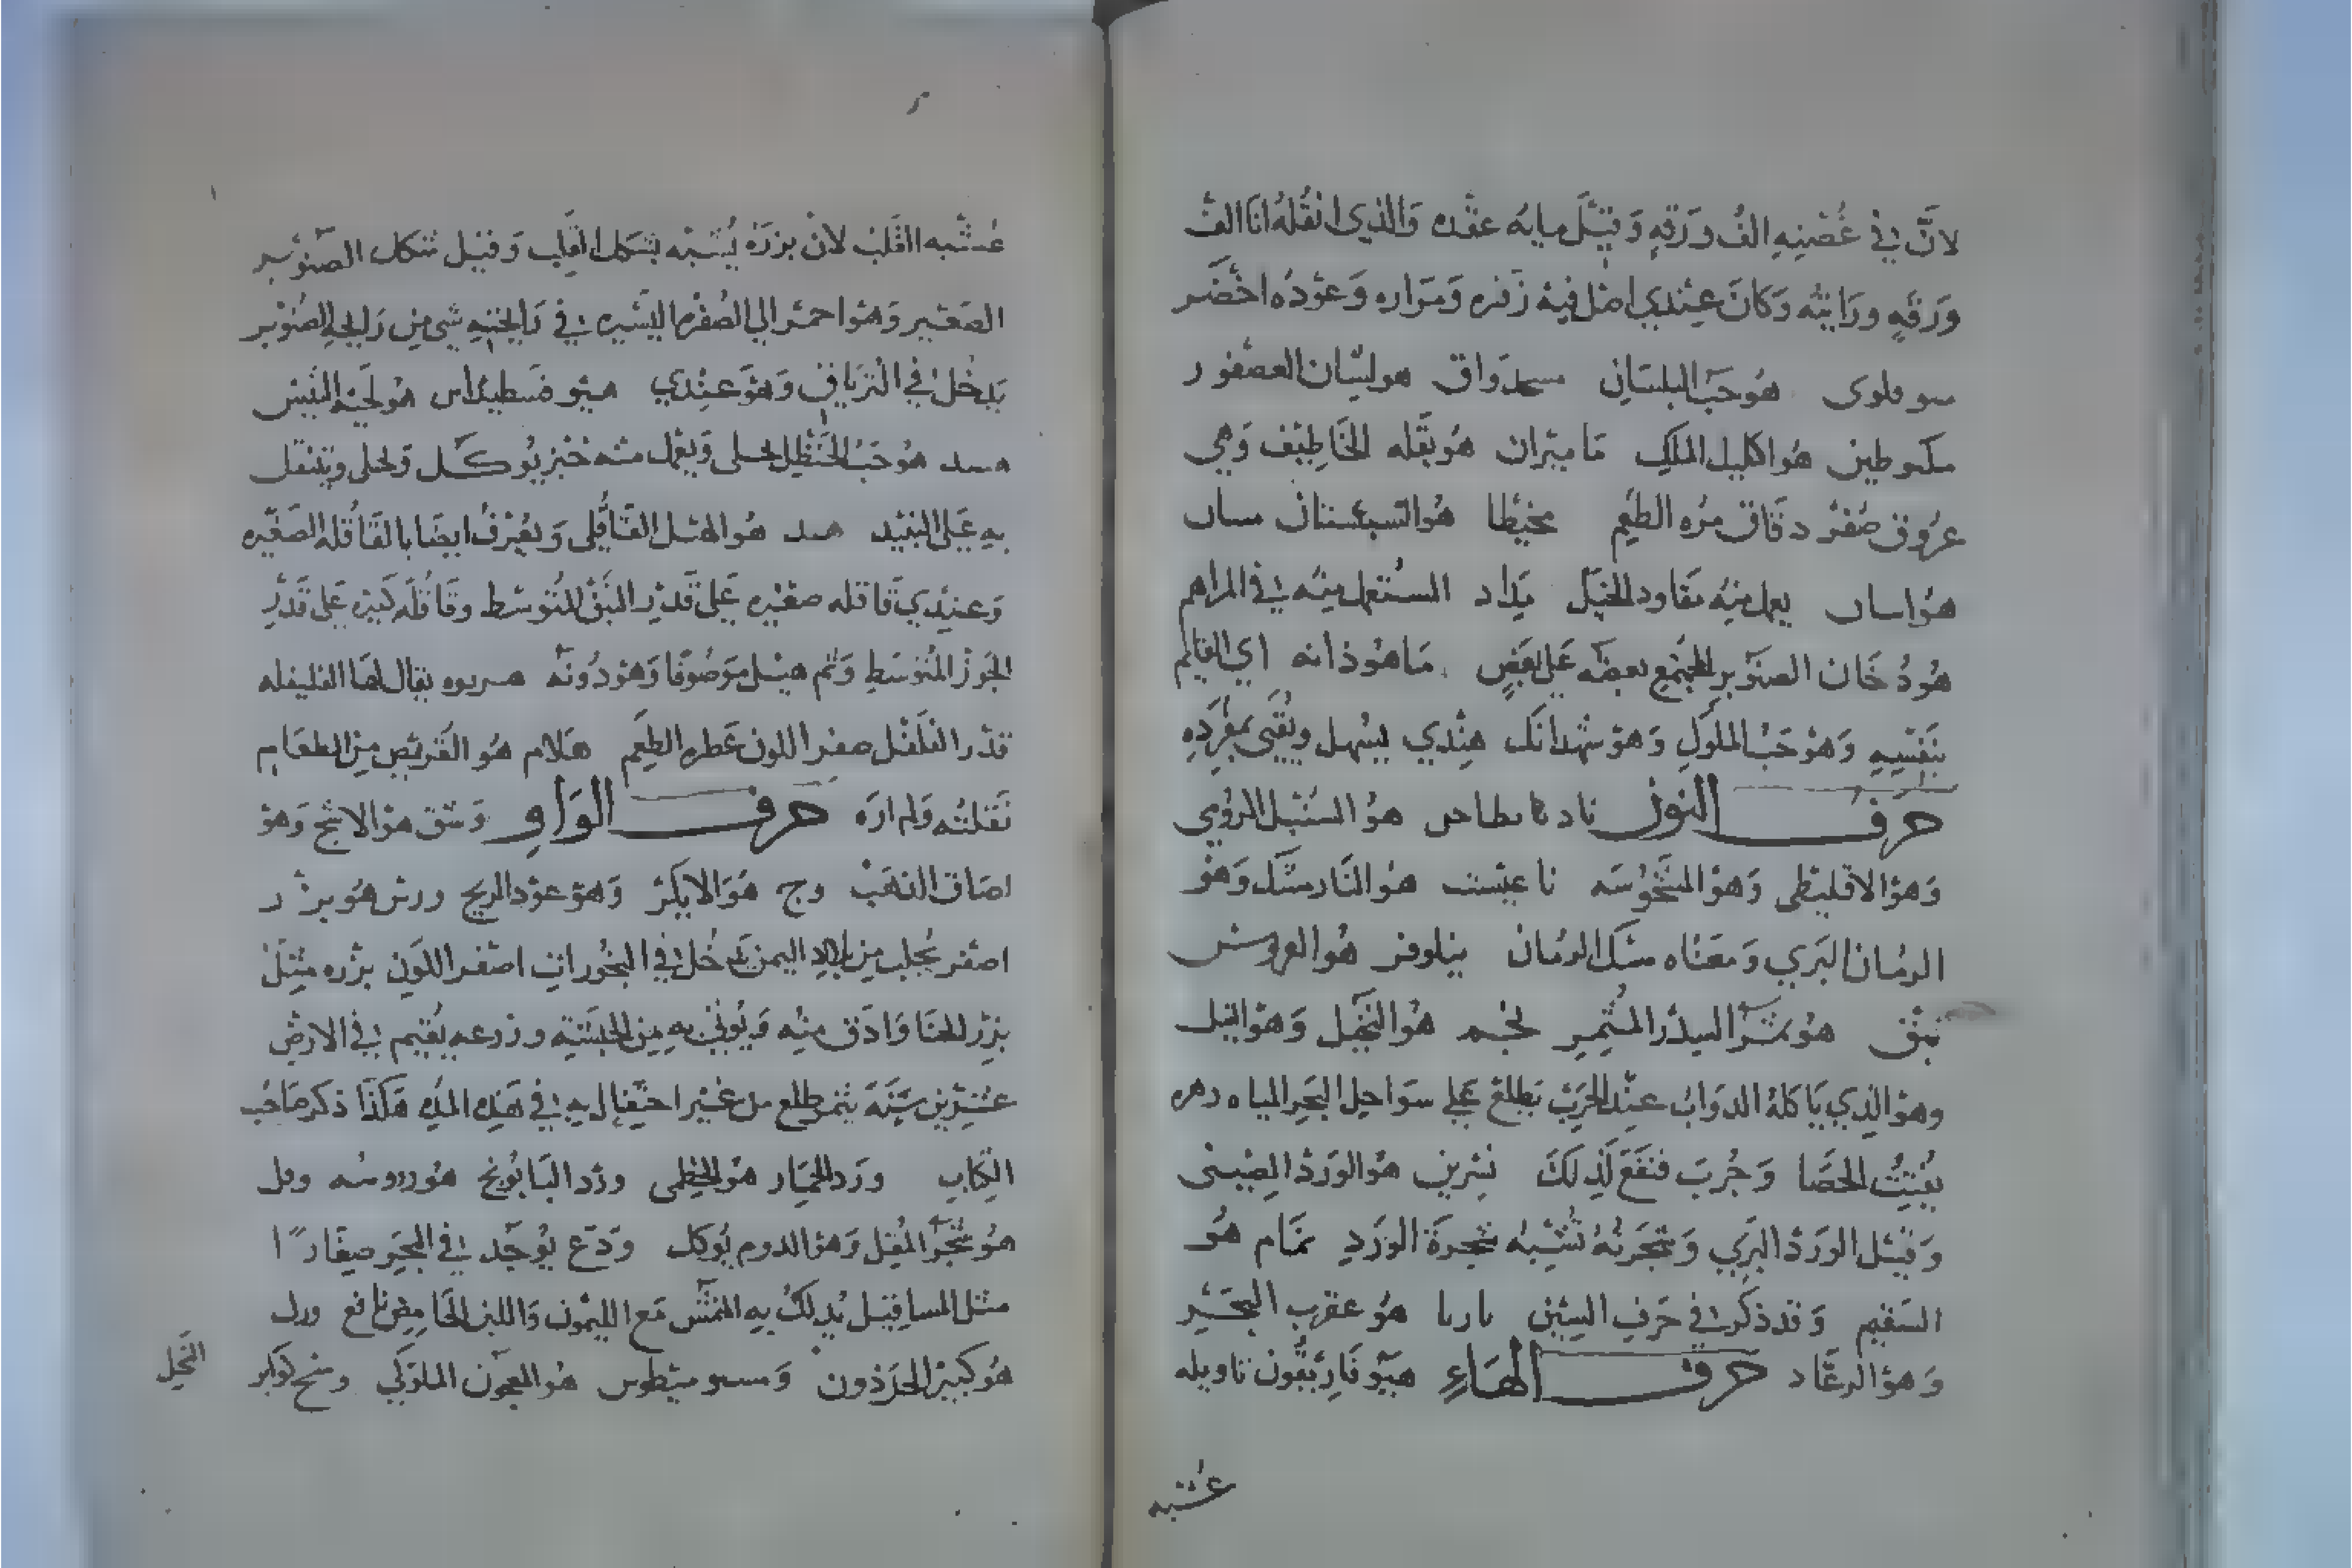 لانّ في غُصنِهِ الفُ ورَقهٍ وَقيْلَ مايه عقده وَالذي انقُلهُ انا الف
وَرَقهٍ ورَايتُه وَكانَ عِندي اصل فيهْ زفره وَمَرَاره وَعوْدُه اخْضَر
هُوَ حَبّ البلسَانِ هو لسَان العصفور
هوَ اكليل الملكِ مَاميرَان هوَ بقله الخَاطِيف وَهي
عرُوق صُفرْ دقَاق مرّه الطَعِم مخيْطا هُوَ السبستان
هوَ يعمل منِه مقَاود الخيَل مِدَاد المسْتعمل مِنه في المراهم
هُوَ دُخَان الصنوَبر المجتمع بعضَه عَلى بَعضٍ مَاهوُذانه اي القايم
بنَفسِهِ وَهوَ حَبّ الملوُكِ وَهوَ شهدَانك هِندي يسُهل ويُقَيّ بمفرَدِهِ
حرف النون هوُ السُنبل الرُومي
وَهوَ الاقليطى وَهوَ هوَ النَار مشك وَهوَ
الرمُان البَري وَمَعنَاه مسك الرمَان نيلوفر هُوَ العروس
نبَق هوُ ثمَر السِدر المثُمِر نجم هُوَ النجَيل وَهوَ الثيل
وهوَ الذِي يَاكلهُ الدوَابُ عِند الحرَب يَطلعَ عَلى سوَاحل البَحر المياه
يُفتتُ الحَصَا وَجُربَ فنفَعَ لَذِلكَ نسَرين هوَ الوَردُ الصِيني
وَقيْل الورَدُ البَري وَشجَرتُهُ تُشْبِهُ شجَرَة الورَدِ نمَام هُوَ
السَقيم وَقد ذكَر في حَرفِ السِين هُو عقرب البحَر
وَهوَ الرعَّاد حرف الهَاءِ هيَوفَاريقُون تاويله
عشبه
عُشبه القَلبْ لانْ بزرَهُ يُشبَه بشَكل القَلب وَقيْل شكل الصنوَبر
الصَغير وَهوَ احمَر الي الصُفرْه اليَسيره في رَايحتِهِ شي مِن رَايحه الصنُوبر
يَدخُل في التريَاق وَهوَ عنِدي هيوفسَطيداس هوُ لحيَه التَيس
هبيد هوُ حَبّ الحَنْظل يحلى وَيعْمَل منه خبْز يوُكل وَيحلى ويَتنقل
بهِ عَلى النبيْذ هُوَ الهيل القَاقلي وَيعُرَفُ ايضَا بالقَاقُله الصَغيَره
وَعندِي قاقله صغيْره عَلى قَدرْ النبَق المتُوسَط وقَاقُلَه كبَيره عَلى قَدرْ
الجوَز المتُوسَطِ وَثم هيَل موَصُوفا وَهوَ دُونَه يقال لهَا الفليفله
قدر الفلفْل صفر اللون عَطره الطعَم هَلام هوُ القَريص مِن الطعَام
نَقلتُه وَلم ارَه حرف الوَاوِ وَشق هوَ الاشج وَهوَ
لصَاق الذهَبْ وج هَوَ الايكر وَهوَ عوْد الريح ورس هوُ بزر
اصفَر يُجلب من بلاد اليمن يَدخُل في البخُورات اصفَر اللوَن بزرَه مثِل
بزر الحنَا وَادَق منِه وَيوُتي بهِ مِن الحبَشَه وزرعه يُقيم في الارض
عشْرين سَنَة يثمر يطلع من غيَر احتفال بهِ في هَذه المدَه هَكذَا ذكر صَاحب
الكِتاب ورَد الحمَار هوَ الخطمى ورَد البَابُونج هوُ وقيل
هوُ شجَر المُقل وَهوَ الدوم يوُكل وَدَع يوُجَد في البَحر صِغَارًا
مثل المسَاقيَل يُدلكُ بهِ النمش مَع الليموُن وَاللبن الحَامِض نافع ورل
هوُ كبَير الحرَذون هوُ المعجوُن الملوُكي وسَخ كوَاير
النَحل